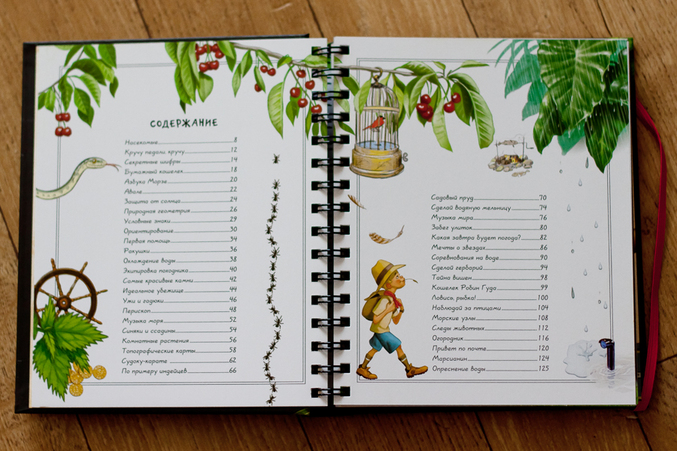 СОДЕРЖАНИЕ
Насекомые 8
Кручу педали, кручу 12
Секретные шифры 14
Бумажный кошелек 18
Азбука Морзе 20
Авале 22
Защита от солнца 24
Природная геометрия 26
Условные знаки 29
Ориентирование 30
Первая помощь 34
Ракушки 36
Охлаждение воды 38
Экипировка походника 40
Самые красивые камни 42
Идеальное убежище 44
Ужи и гадюки 46
Перископ 48
Музыка моря 52
Синяки и ссадины 54
Комнатные растения 56
Топографические карты 58
Судоку-карате 62
По примеру индейцев 66
Садовый пруд 70
Сделай водяную мельницу 74
Музыка мира 76
Забег улиток 80
Какая завтра будет погода? 82
Мечты о звездах 86
Соревнования на воде 90
Сделай гербарий 94
Тайна вишен 98
Кошелек Робин Гуда 99
Ловись, рыбка! 100
Наблюдай за птицами 104
Морские узлы 108
Следы животных 112
Огородник 116
Привет по почте 120
Марсианин 124
Опреснение воды 125